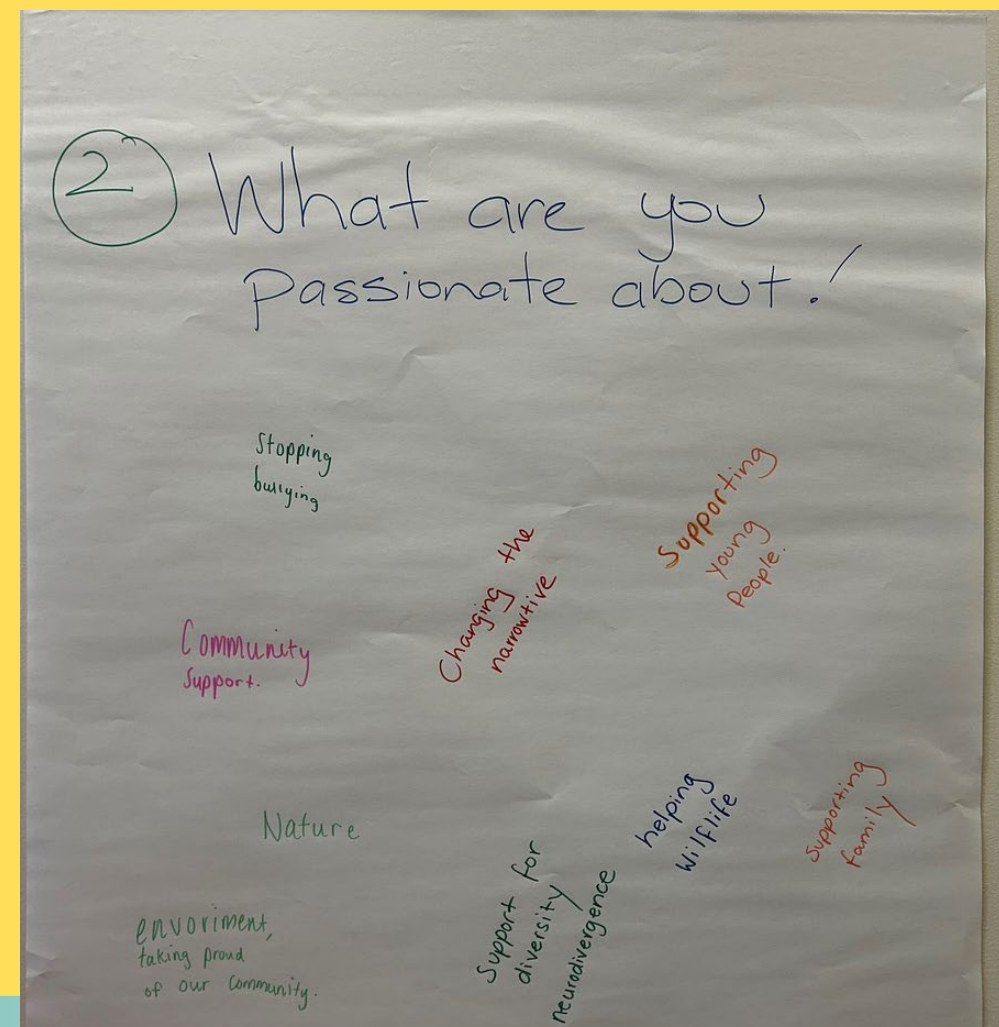 2
What are you
passionate about!
Stopping
bullying
Supporting
young
People.
Changing the
narrowtive
Community
Support.
Nature
helping
Wilflife
Supporting
family
Support for
diversity
neurodivergence
envoriment,
taking proud
of our Community.